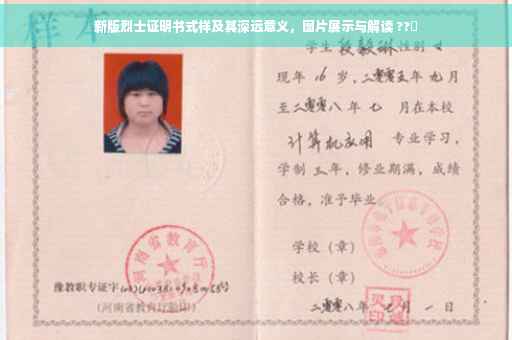 新版烈士证明书式样及其深远意义，图片展示与解读 ??
样本
学生段毅琳性别女
现年 16 岁，二零零五年 九 月
至二零零八 年 七 月在本校
计算机应用 专业学习，
学制 三 年，修业期满，成绩
合格，准予毕业。
学校（章）
校长（章）
二零零八年 七 月 一 日
河南省教育厅
豫教职专证字
（河南省教育厅验印）